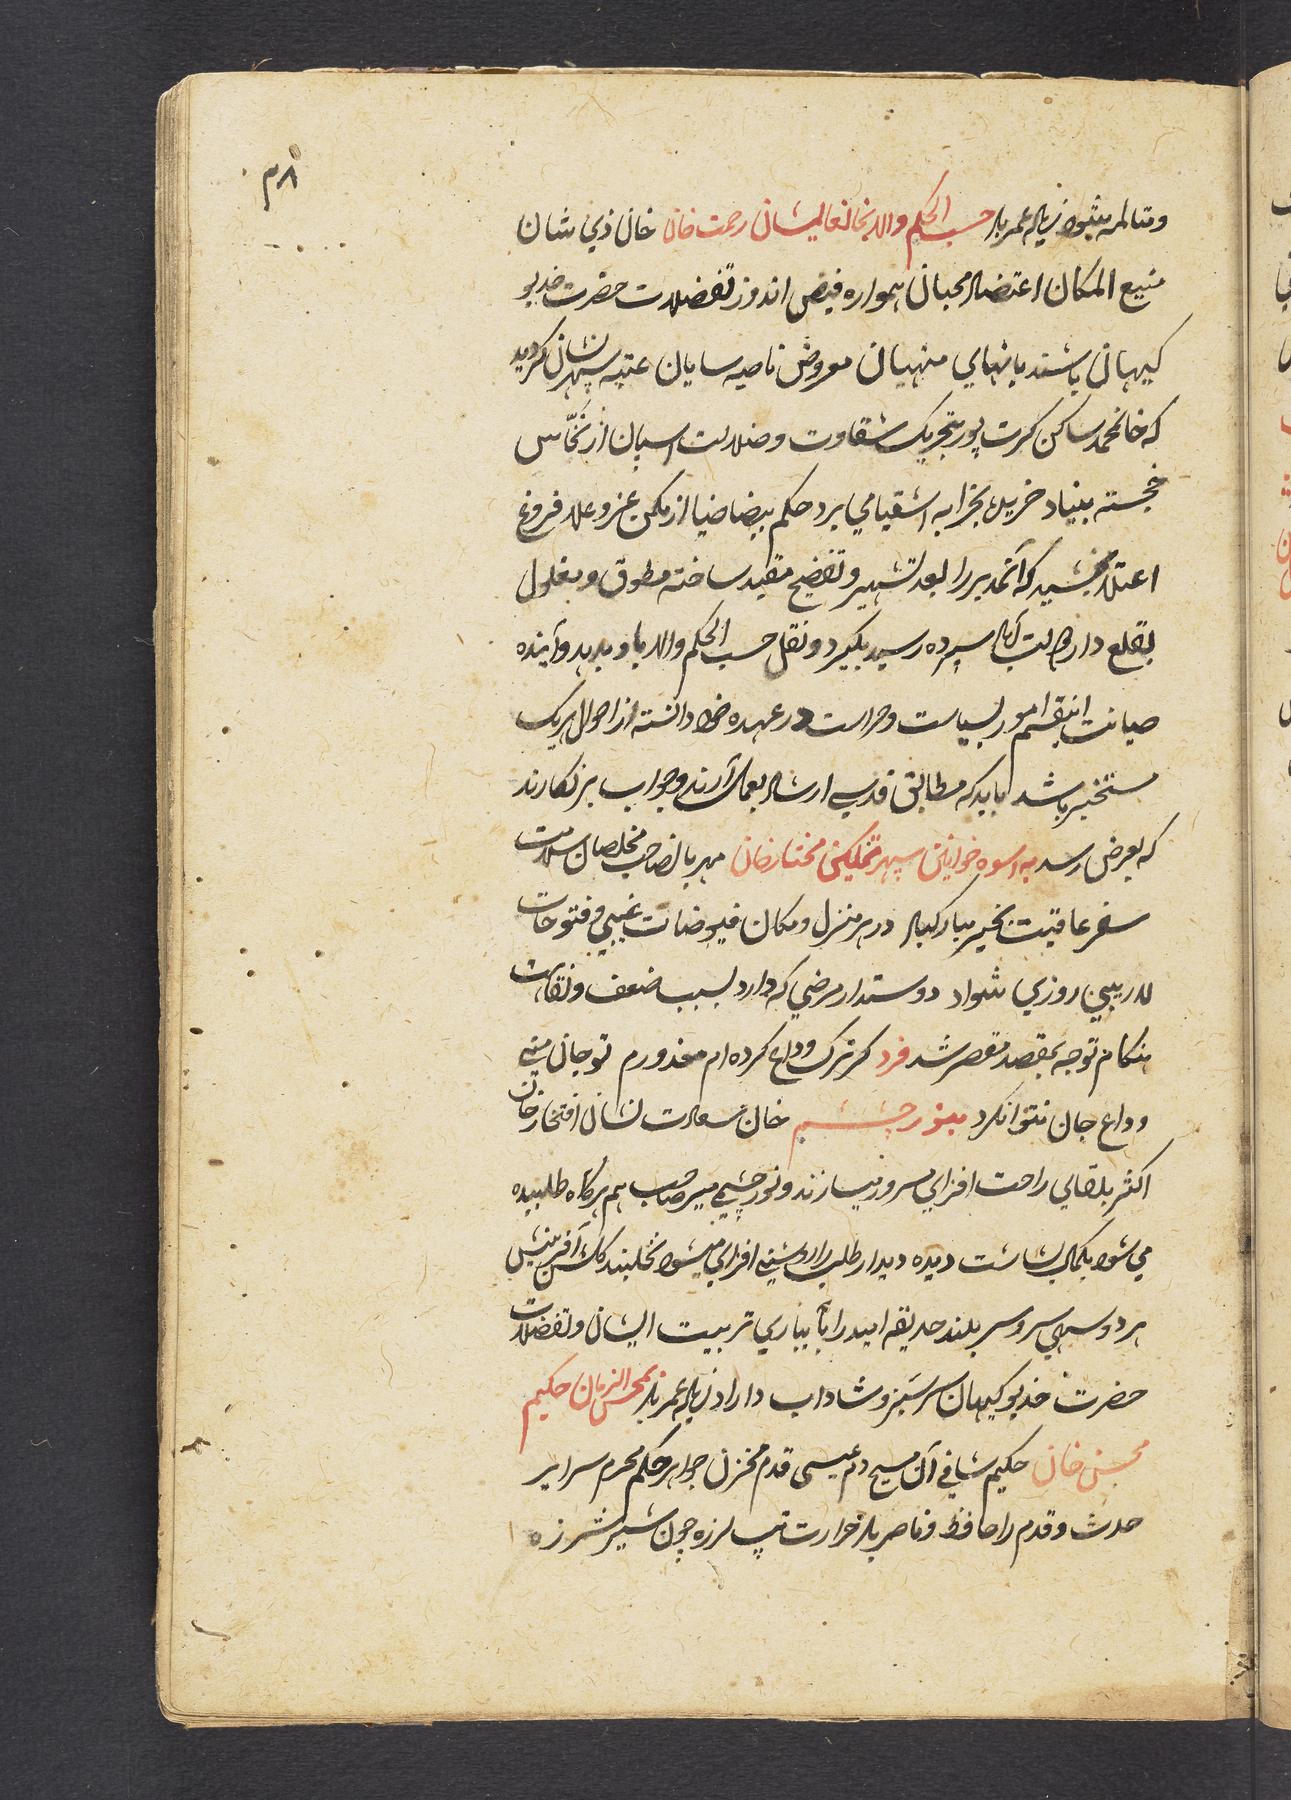 ۳۸
و متألمه میشود زیاده عمر باد حسب الحکم والا بخانعالیشان رحمت خان خان ذی شان
منیع المکان اعتضاد محبان همواره فیض اندوز تفضلات حضرت خدیو
کیهان باشند بانهای منهیان معروض ناصیه سایان عتبه سپهرنشان گردید
که خانمحمد ساکن کرت پور بتحریک شقاوت و ضلالت اسپان از نخاس
خجسته بنیاد خریده بخرابه اشقیا می برد حکم بیضا ضیا از مکمن عز و علا فروغ
اعتلا بخشید که آنمدبر را بعد تشهیر و تفضیح مقید ساخته مطوق و مغلول
بقلع دار سپرده رسید بگیرد و نقل حسب الحکم والا باو بدهد و آینده
صیانت اینقسم امور بسیاست و حراست در عهده خود دانسته از احوال هریک
مستخبر باشد باید که مطابق قدسی ارشاد بعمل آرند و جواب برنگارند
که بعرض رسد به اسوه خوانین سپهر تمکین مختار خان مهربان صاحب مخلصان سلامت
سفر عاقبت بخیر مبارکباد در هر منزل و مکان فیوضات غیبی و فتوحات
لاریبی روزی شواد دوستدار مرضی که دارد بسبب ضعف و نقاهت
هنگام توجه بمقصد مقصر شد فرد گر ترک وداع کرده ام معذورم تو جان منی
و داع جان نتوانکرد بنور چشم خان سعادت نشان افتخار خان
اکثر بلقای راحت افزای مسرور میسازند و نور چشمی میر صاحب هم هرگاه طلبیده
می شود بکمال بشاشت دیده دیدار طلب را روشنی افزای میشود نخلبند گلشن آفرینش
هر دو سهی سرو سربلند حدیقه امید را بآبیاری تربیت ایشان و تفضلات
حضرت خدیو کیهان سرسبز و شاداب داراد زیاده عمر باد بمحسن الزمان حکیم
محسن خان حکیم شافی آن مسیح دم عیسی قدم مخزن جواهر حکم محرم سرایر
حدث و قدم را حافظ و ناصر باد حرارت تپ لرزه چون شیر شرزه